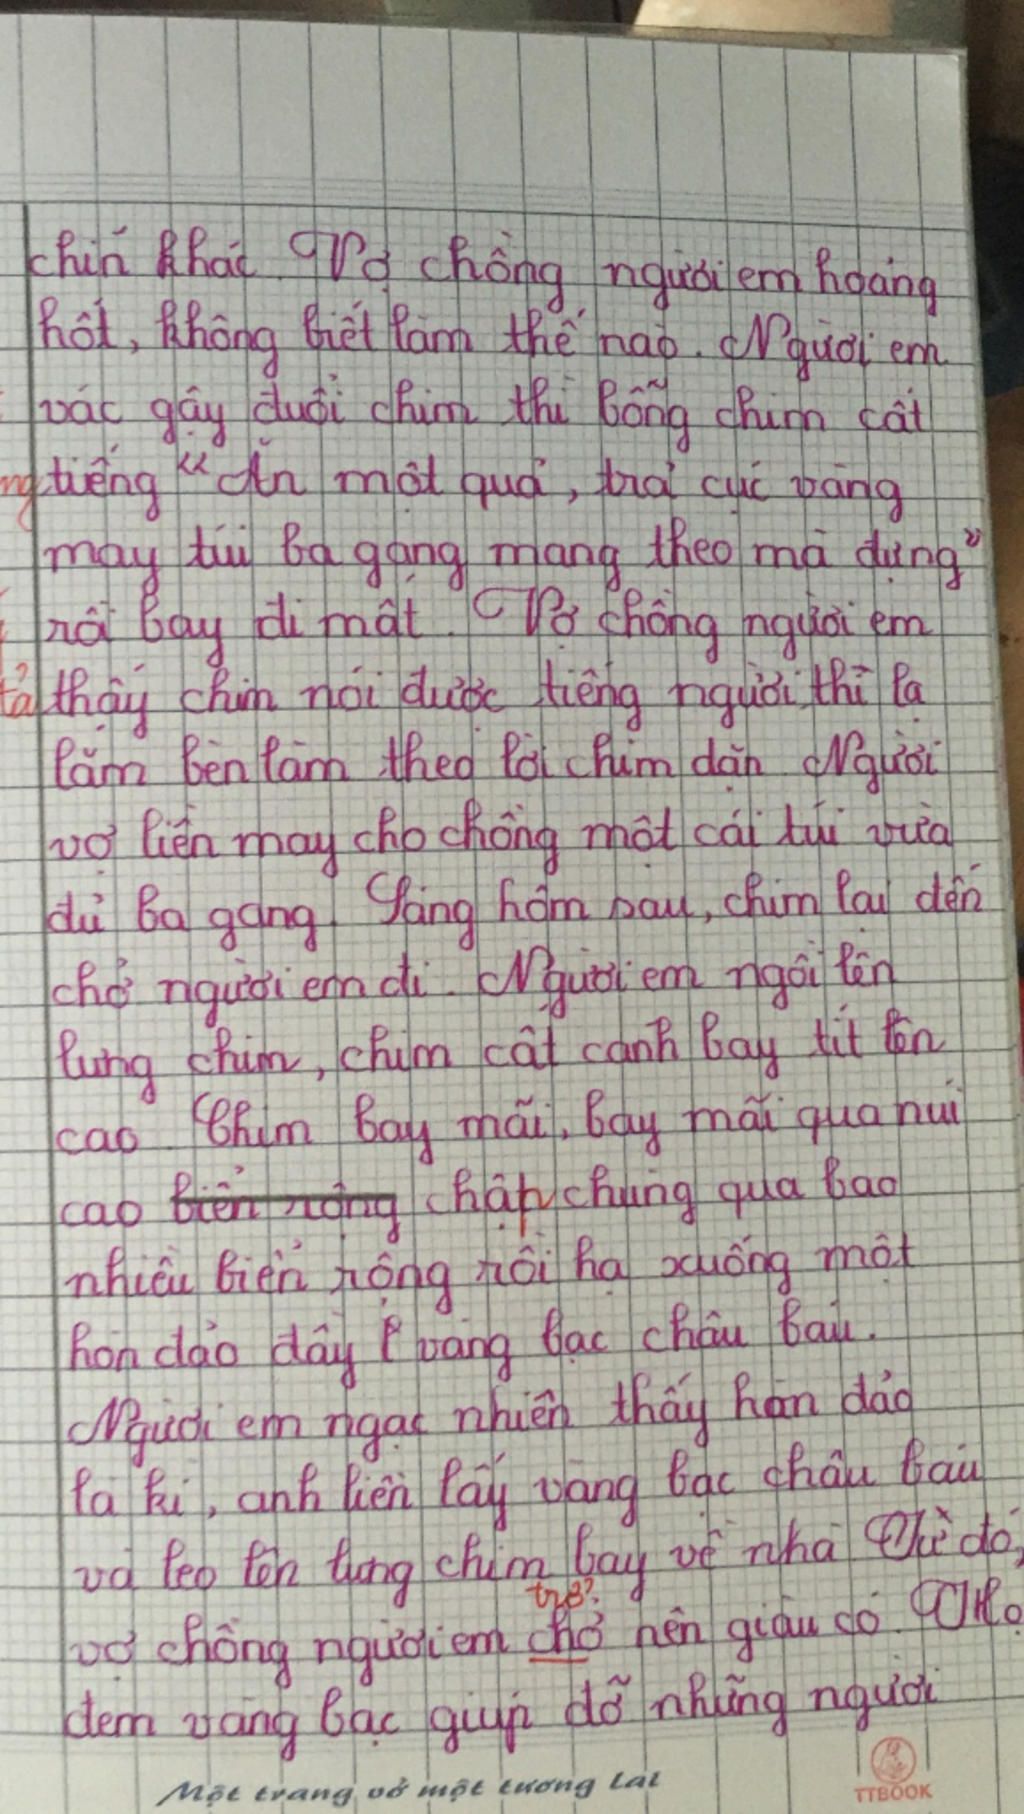 chín khác. Vợ chồng người em hoảng
hốt, không biết làm thế nào. Người em
vác gậy đuổi chim thì bỗng chim cất
ng tiếng "Ăn một quả, trả cục vàng
may túi ba gang mang theo mà đựng"
rồi bay đi mất. Vợ chồng người em
tả thấy chim nói được tiếng người thì lạ
lắm bèn làm theo lời chim dặn. Người
vợ liền may cho chồng một cái túi vừa
đủ ba gang. Sáng hôm sau, chim lại đến
chở người em đi. Người em ngồi lên
lưng chim, chim cất cánh bay tít lên
cao. Chim bay mãi, bay mãi qua núi
cao biển rộng chập chùng qua bao
nhiêu biển rộng rồi hạ xuống một
hòn đảo đầy vàng bạc châu báu.
Người em ngạc nhiên thấy hòn đảo
la kì, anh liền lấy vàng bạc châu báu
và leo lên lưng chim bay về nhà. Từ đó,
trở?
vợ chồng người em chở nên giàu có. Họ
đem vàng bạc giúp đỡ những người
Một trang vở một tương lai
TTBOOK